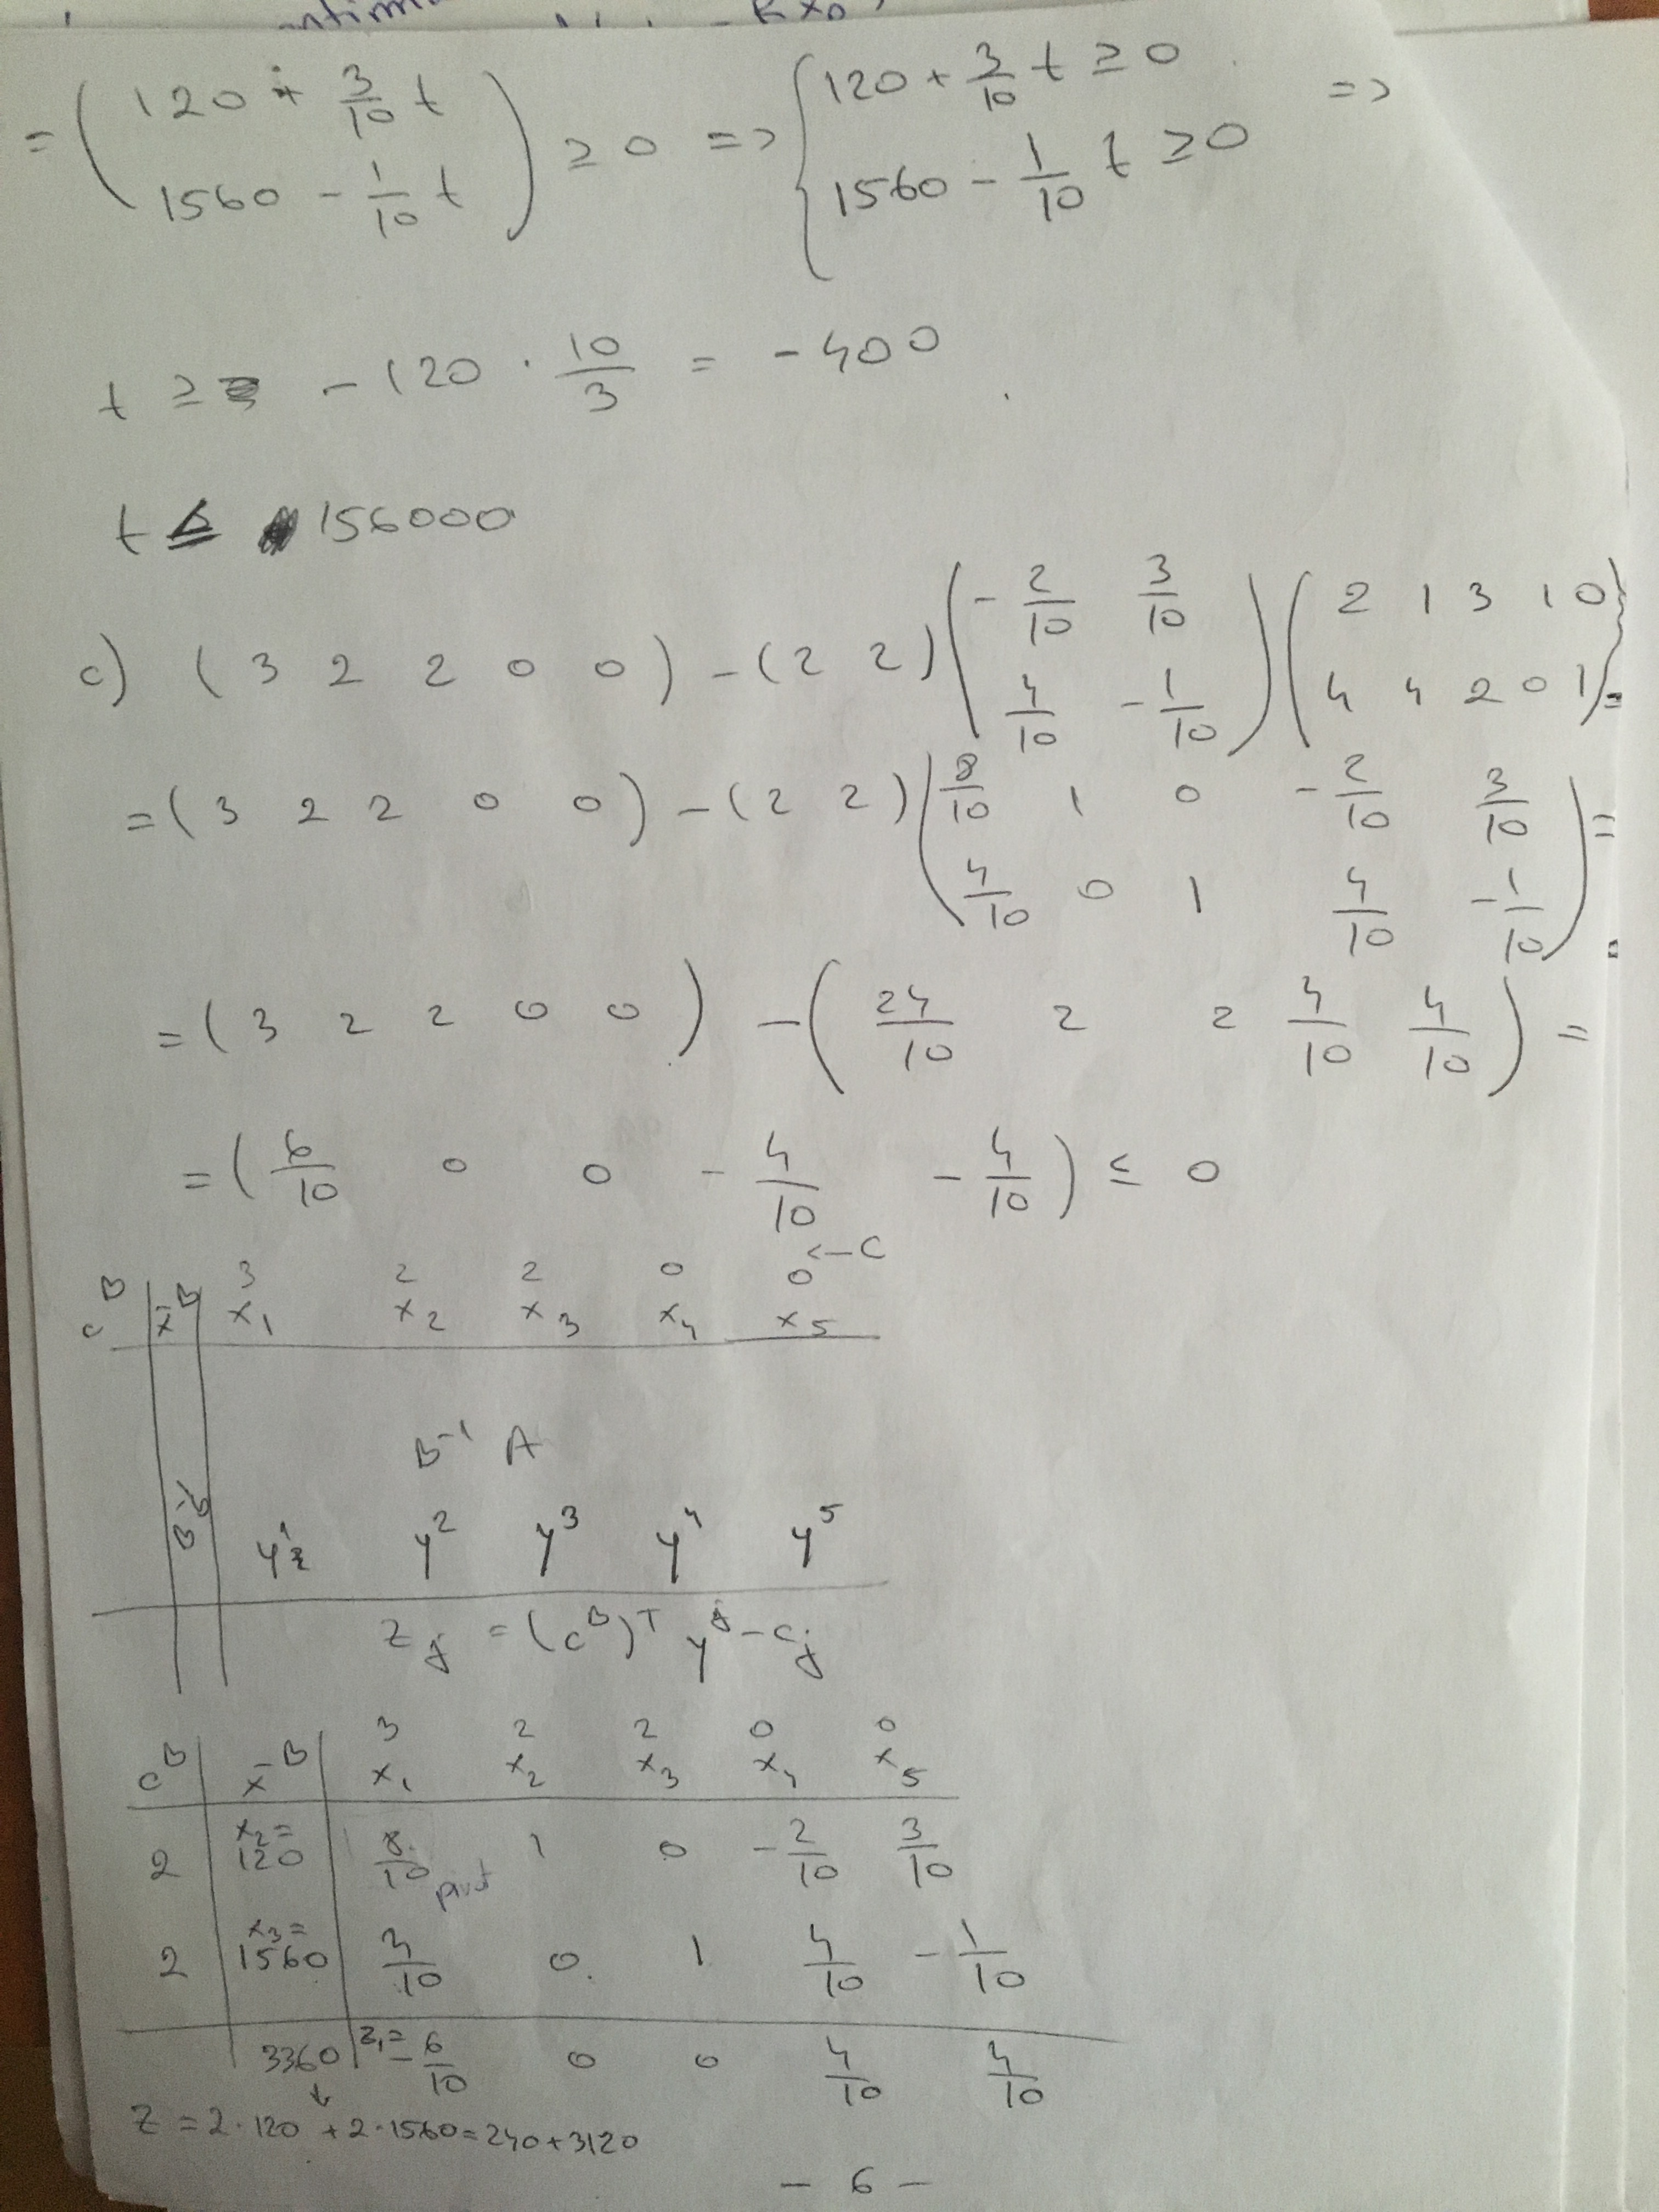 = ( 120 + 3/10 t ) ≥ 0 => { 120 + 3/10 t ≥ 0 =>
1560 - 1/10 t 1560 - 1/10 t ≥ 0
t ≥ - 120 · 10/3 = - 400
t ≤ 156000
c) ( 3 2 2 0 0 ) - ( 2 2 ) ( -2/10 3/10 ) ( 2 1 3 1 0 )
4/10 -1/10 4 4 2 0 1 =
= ( 3 2 2 0 0 ) - ( 2 2 ) ( 8/10 1 0 -2/10 3/10 ) =
4/10 0 1 4/10 -1/10
= ( 3 2 2 0 0 ) - ( 24/10 2 2 4/10 4/10 ) =
= ( 6/10 0 0 -4/10 -4/10 ) ≤ 0
3 2 2 0 0 <- C
c^B x̄^B x1 x2 x3 x4 x5
B^-1 A
B^-1 b y^1 y^2 y^3 y^4 y^5
z_j = (c^B)^T y^j - c_j
3 2 2 0 0
c^B x̄^B x1 x2 x3 x4 x5
2 x2= 120 8/10 pivot 1 0 -2/10 3/10
2 x3= 1560 4/10 0 1 4/10 -1/10
3360 z1= -6/10 0 0 4/10 4/10
Z = 2·120 + 2·1560 = 240 + 3120
- 6 -